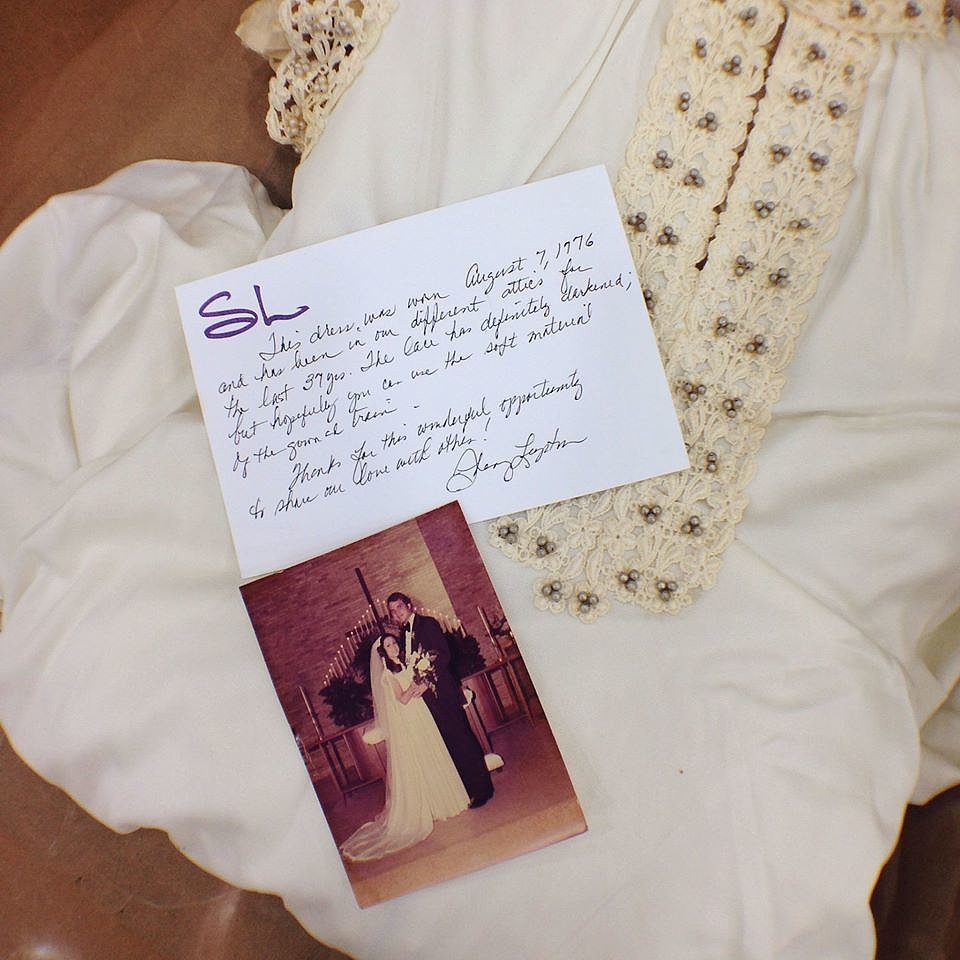 SL
This dress was worn August 7, 1976
and has been in our different attics for
the last 37 yrs. The lace has definitely darkened;
but hopefully you can use the soft material
of the gown & train.
Thanks for this wonderful opportunity
to share our love with others!